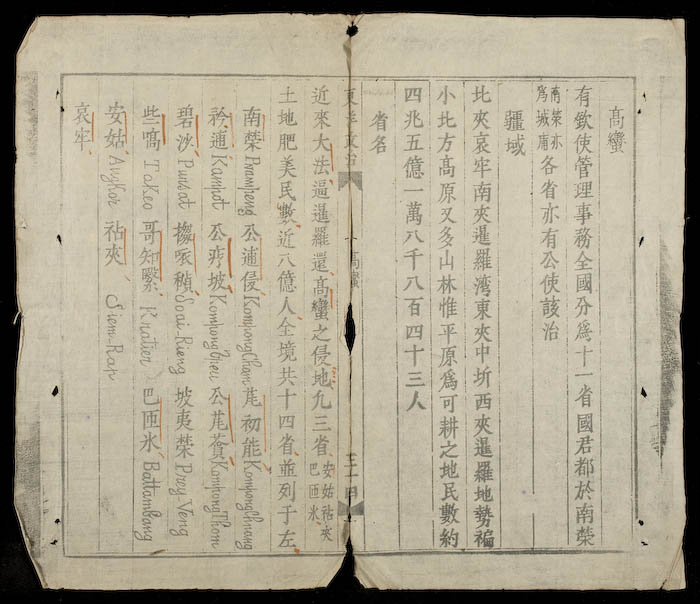 高蠻
有欽使管理事務全國分爲十一省國君都於南榮
南榮亦
爲城庸
各省亦有公使該治
疆域
北夾哀牢南夾暹羅湾東夾中圻西夾暹羅地勢褊
小北方高原又多山林惟平原爲可耕之地民數約
四兆五億一萬八千八百四十三人
省名
東洋政治 高蠻 三十四
近來大法逼暹羅還高蠻之侵地凢三省
安姑祜夾
巴匝氷
土地肥美民數近八億人全境共十四省並列于左
南榮 Pnompenh 公逋侵 Kompong Cham 芘初能 Kompong Chnang
衿逋 Kampot 公疛坡 Kompong Speu 公芘賔 Kompong Thom
碧沙 Pursat Soai-Rieng 坡夷榮 Prey-Veng
些啺 Takeo 哥知毉 Kratier 巴匝氷 Battambang
安姑 Angkor 祜夾 Siem-Rap
哀牢